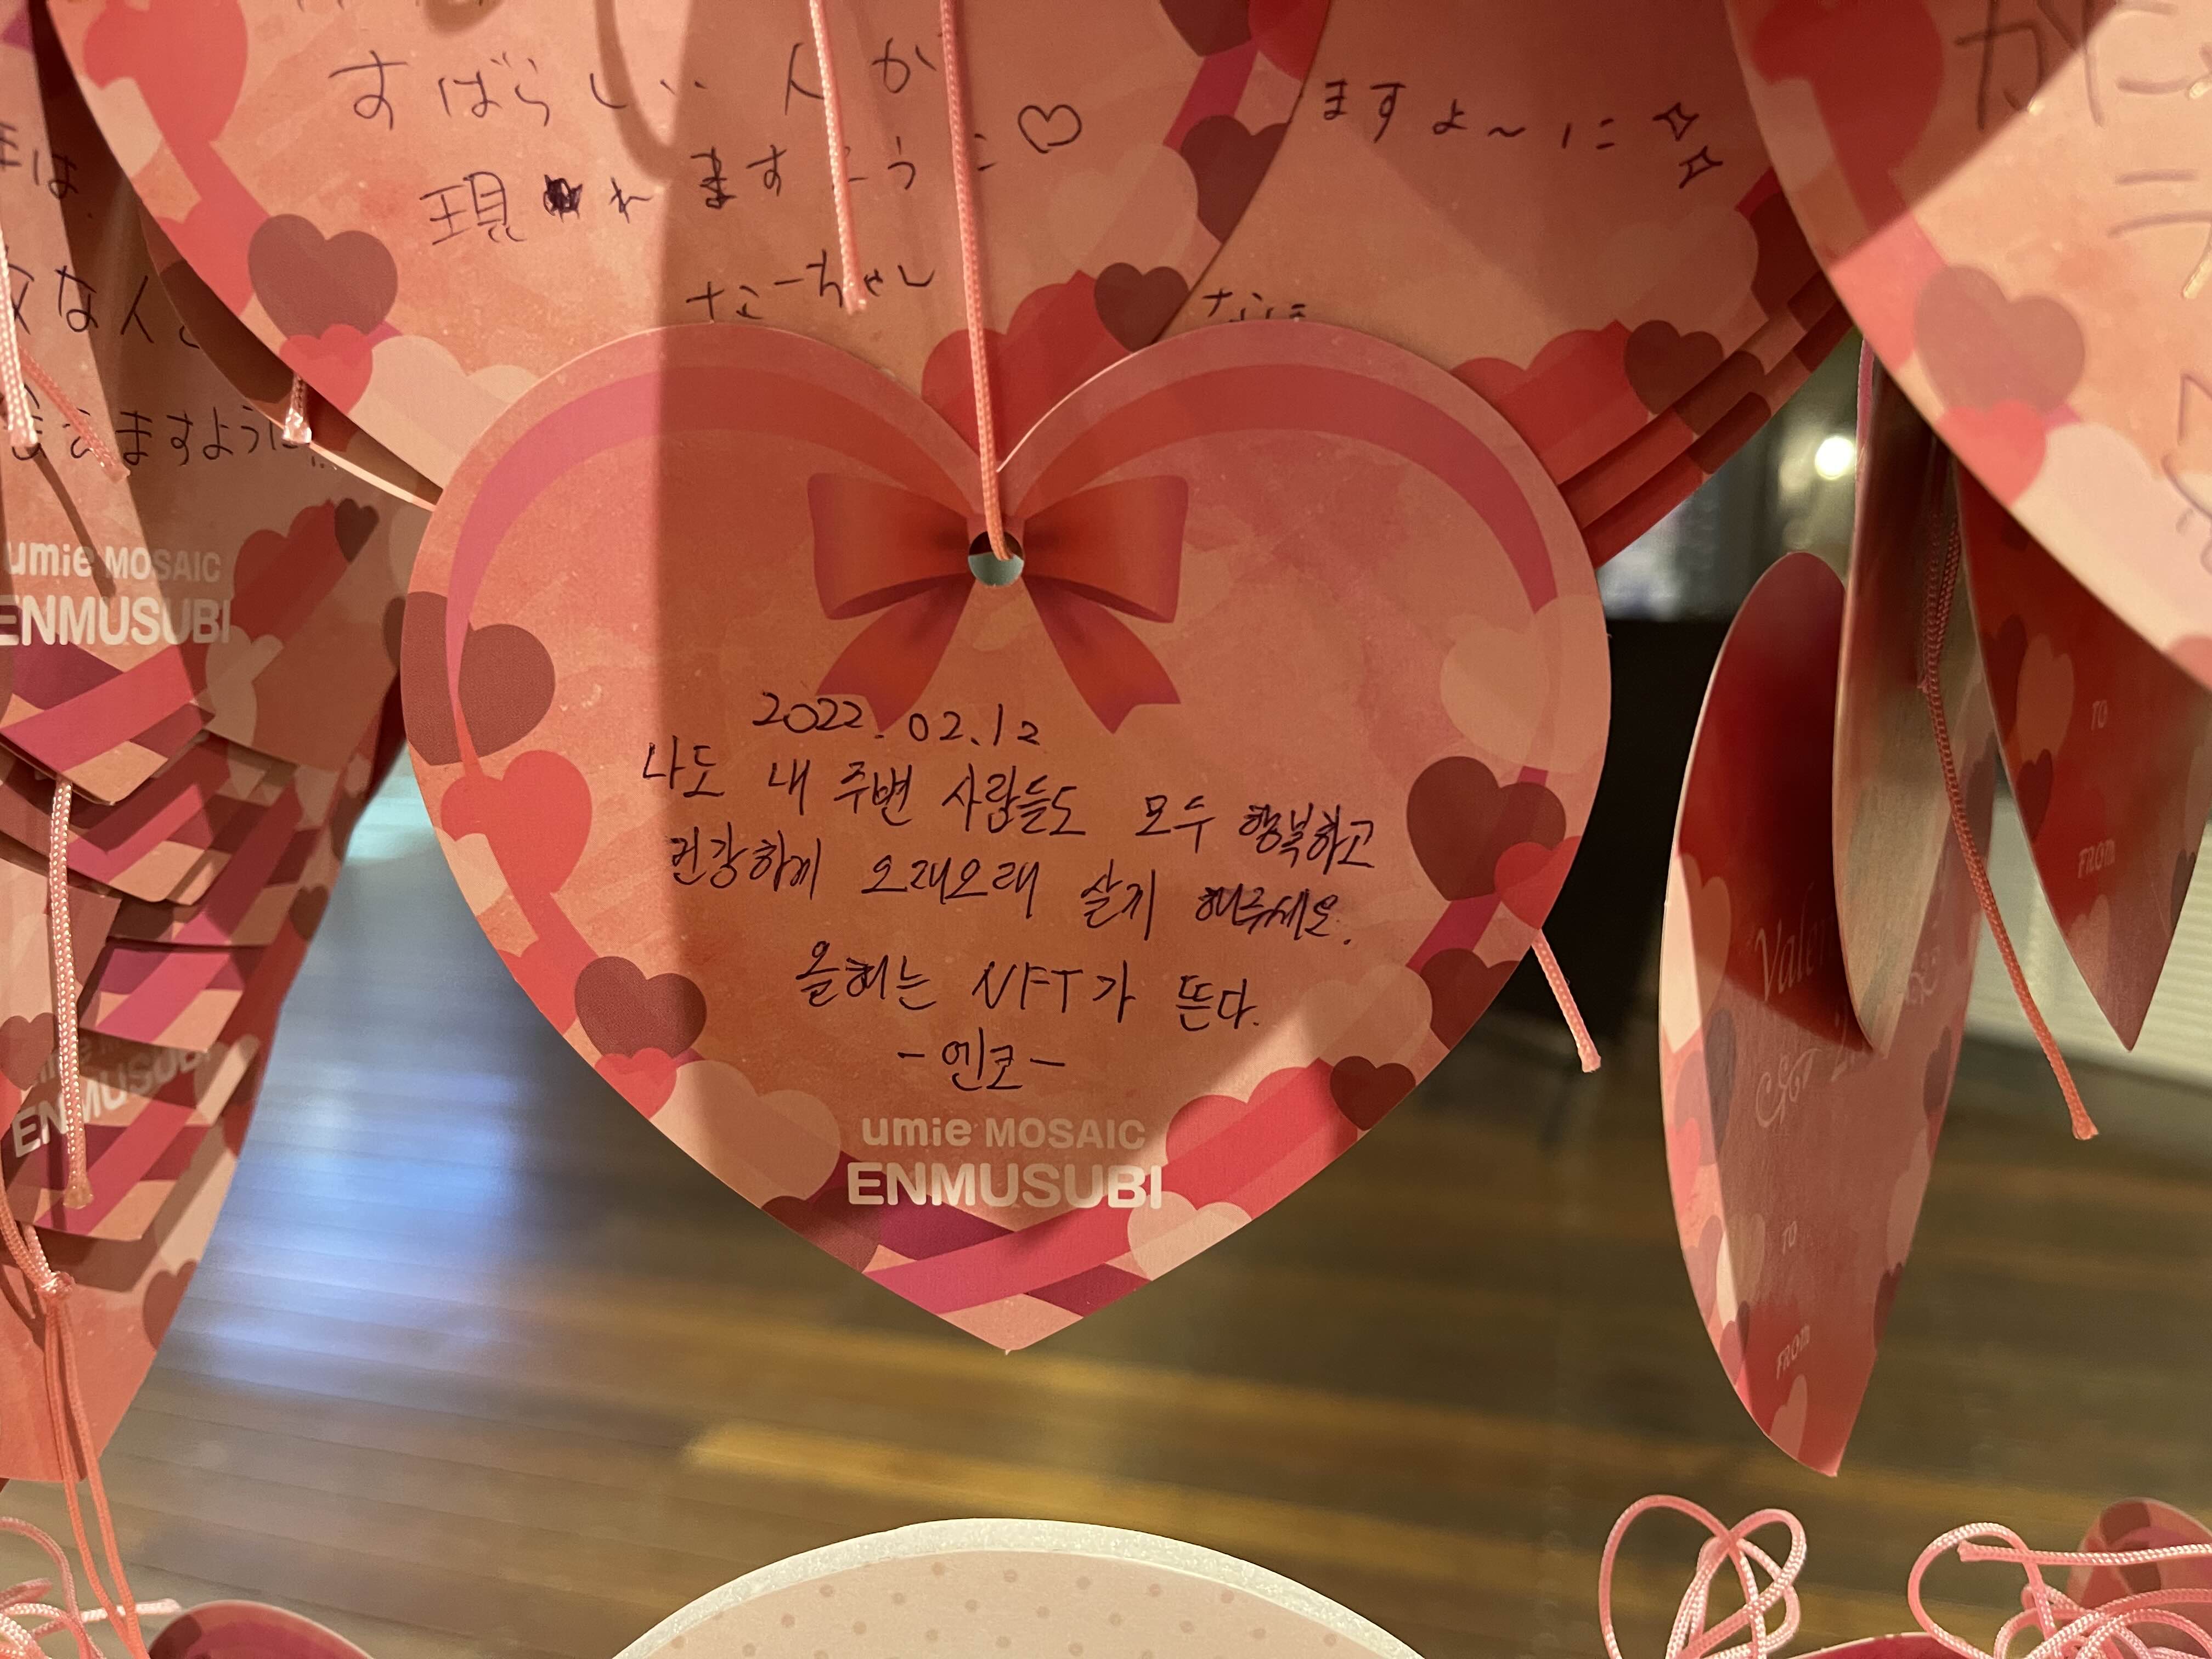 すばらしい人が
現れますように♡
なーちゃん
ますよ〜に
なほ
敵な人と
ますように
umie MOSAIC
ENMUSUBI
2022.02.12
나도 내 주변 사람들도 모두 행복하고
건강하게 오래오래 살게 해주세요.
올해는 NFT가 뜬다.
-엔코-
umie MOSAIC
ENMUSUBI
ENMUSUBI
TO
FROM
TO
FROM